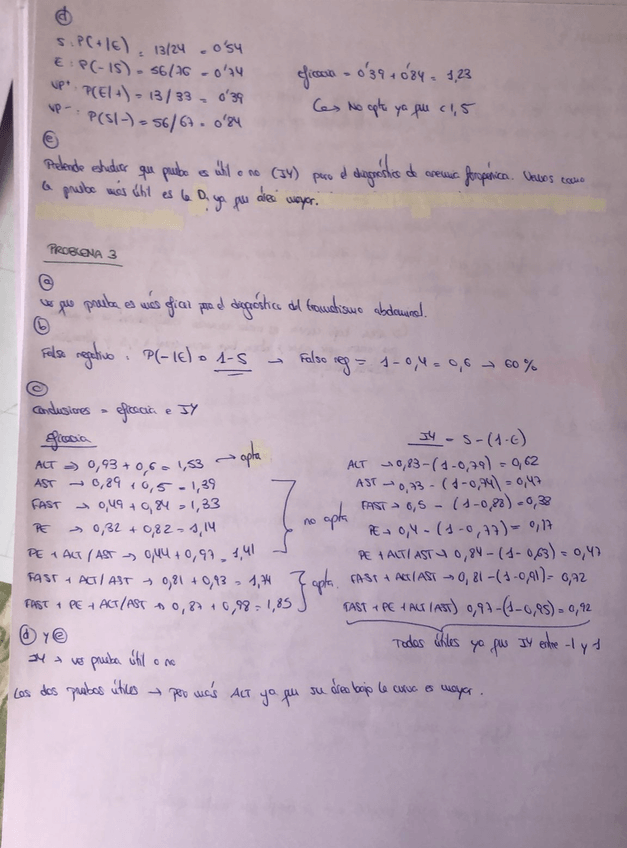 d
S : P(+|E) = 13/24 = 0'54
E : P(-|S) = 56/76 = 0'74
VP+ : P(E|+) = 13/33 = 0'39
VP- : P(S|-) = 56/67 = 0'84
eficacia = 0'39 + 0'84 = 1,23
↳ No apta ya que < 1,5
e
Pretende estudiar que prueba es útil o no (IY) para el diagnóstico de anemia ferropénica. Vemos como
la prueba más útil es la D, ya que área mayor.
PROBLEMA 3
a
Ver que prueba es más eficaz para el diagnóstico del traumatismo abdominal.
b
Falso negativo : P(-|E) = 1-S → Falso neg = 1-0,4 = 0,6 → 60%
c
Conclusiones = eficacia e IY
Eficacia
ALT → 0,93 + 0,6 = 1,53 → apta
AST → 0,89 + 0,5 = 1,39
FAST → 0,49 + 0,84 = 1,33
PE → 0,32 + 0,82 = 1,14
PE + ALT/AST → 0,44 + 0,97 = 1,41
no apta
FAST + ALT/AST → 0,81 + 0,93 = 1,74
FAST + PE + ALT/AST → 0,87 + 0,98 = 1,85
apta.
IY = S-(1-E)
ALT → 0,83-(1-0,79) = 0,62
AST → 0,73-(1-0,74) = 0,47
FAST → 0,5-(1-0,88) = 0,38
PE → 0,4-(1-0,77) = 0,17
PE + ALT/AST → 0,84-(1-0,63) = 0,47
FAST + ALT/AST → 0,81-(1-0,91) = 0,72
FAST + PE + ALT/AST) 0,97-(1-0,95) = 0,92
Todas útiles ya que IY entre -1 y 1
d y e
IY → ver prueba útil o no
Las dos pruebas útiles → pero más ALT ya que su área bajo la curva es mayor.